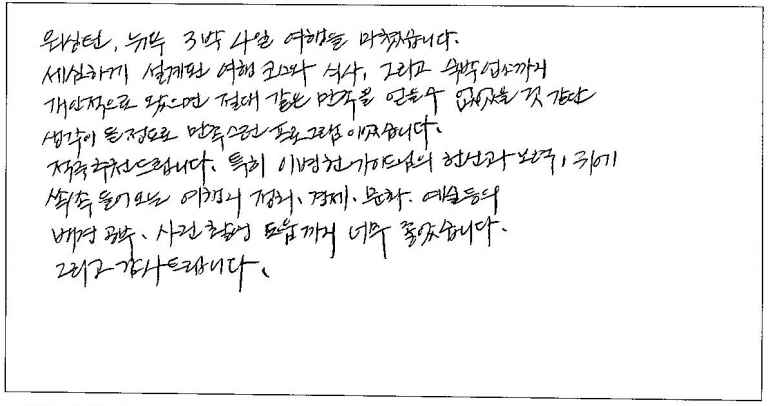 워싱턴, 뉴욕 3박 4일 여행을 마쳤습니다.
세심하게 설계된 여행 코스와 식사, 그리고 숙박업소까지
개인적으로 왔으면 절대 같은 만족을 얻을수 없었을 것 같단
생각이 들 정도로 만족스런 프로그램이었습니다.
적극추천드립니다. 특히 이병헌가이드님의 헌신과 노력, 귀에
쏙쏙 들어오는 여행지 정치, 경제, 문화, 예술 등의
배경 공부, 사진 촬영 도움까지 너무 좋았습니다.
그리고 감사드립니다.